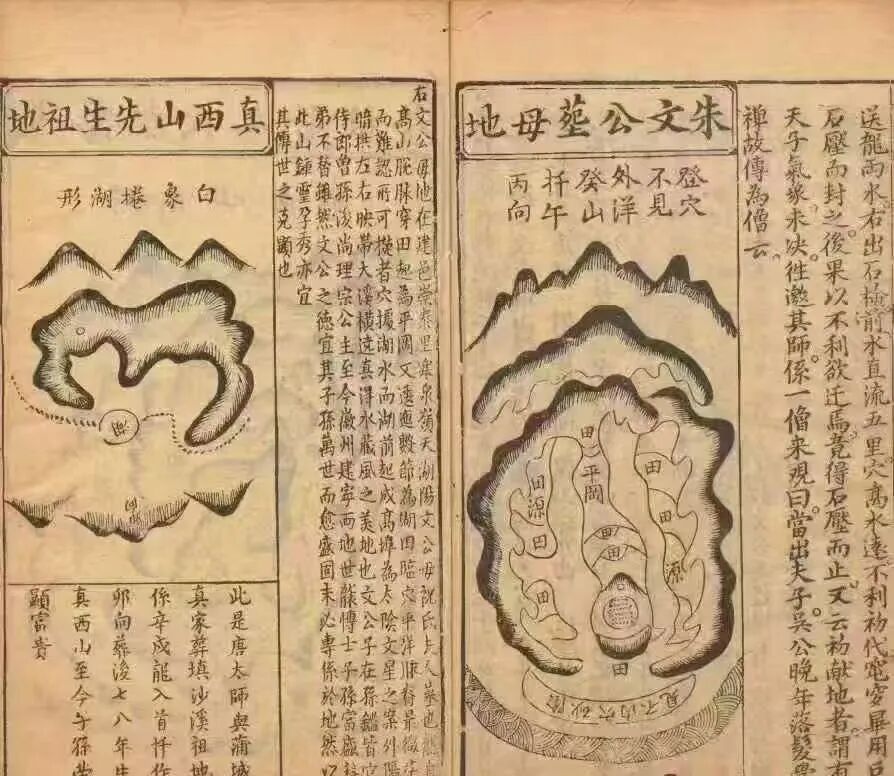 送龍雨水右出石橋前水直流五里穴高水遠不利初代竁穿畢用巨
石壓而封之後果以不利欲迁焉竟得石壓而止又云初献地者謂有
天子氣象未決徃邀其師係一僧来覌曰當出夫子吳公晚年落髮學
禅故傳為僧云
朱文公塟母地
登穴
不見
外洋
癸山
扦午
丙向
田
平岡
田
田
田
源
田
源
田
田
田
陰砂穴内不見
右文公母地在建邑崇泰里寒泉嶺天湖陽文公母祝氏夫人墓也龍自
髙山脱脉穿田起為平岡又逶迤數節為湖田臨穴平洋脉脊景微茫
而難認所可據者穴據湖水而湖前起成髙埠為太陰文星之案外陽
暗拱左右映帶大溪横遶真得水藏風之美地也文公子在孫鑑皆官
侍郎曽孫浚尚理宗公主至今徽州建寧两地世襲博士子孫富盛
弟不替雖然文公之德宜其子孫萬世而愈盛固未必專係於地然以
此山鍾靈孕秀亦宜
其傳世之克顕也
真西山先生祖地
白象捲湖形
此是唐太師與蒲城
真家葬填沙溪祖地
係辛戍龍入首忤作
卯向葬後七八年生
真西山至今子孫
顕富貴